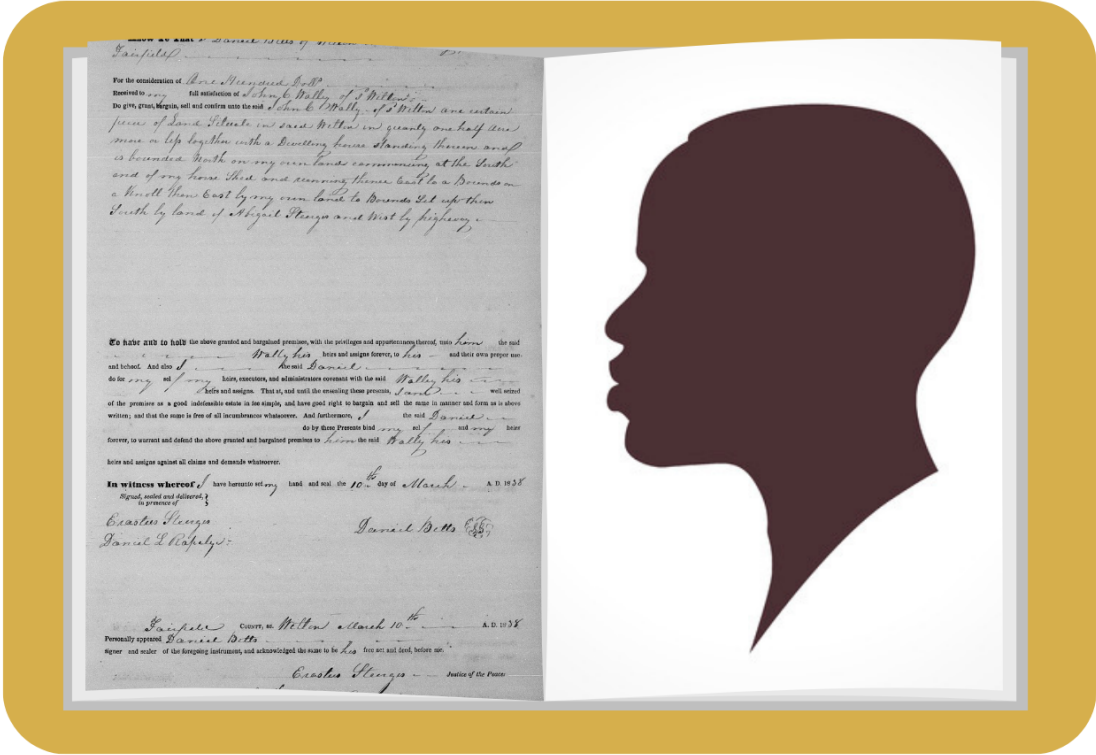 Know Ye That I Daniel Betts of Wilton
Fairfield
For the consideration of One Hundred Doll
Received to my full satisfaction of John C Wally of Sd Wilton
Do give, grant, bargain, sell and confirm unto the said John C Wally of Sd Wilton one certain
piece of Land Situate in said Wilton in quanty one half acre
more or less together with a Dwelling house standing thereon and
is bounded North on my own lands commencing at the South
end of my horse Shed and running thence East to a Bounds on
a Knoll then East by my own land to Bounds Set up then
South by land of Abigail Sturges and West by highway
To have and to hold the above granted and bargained premises, with the privileges and appurtenances thereof, unto him the said
Wally his heirs and assigns forever, to his and their own proper use
and behoof. And also I the said Daniel
do for my self my heirs, executors, and administrators covenant with the said Walley his
heirs and assigns. That at, and until the ensealing these presents, I am well seized
of the premises as a good indefeasible estate in fee simple, and have good right to bargain and sell the same in manner and form as is above
written; and that the same is free of all incumbrances whatsoever. And furthermore, I the said Daniel
do by these Presents bind my self and my heirs
forever, to warrant and defend the above granted and bargained premises to him the said Wally his
heirs and assigns against all claims and demands whatsoever.
In witness whereof I have hereunto set my hand and seal the 10th day of March A. D. 1838
Signed, sealed and delivered,
in presence of
Erastus Sturges
Daniel Betts
Daniel L Rapelye
Fairfield County, ss. Wilton March 10th A. D. 1838
Personally appeared Daniel Betts
signer and sealer of the foregoing instrument, and acknowledged the same to be his free act and deed, before me.
Erastus Sturges Justice of the Peace